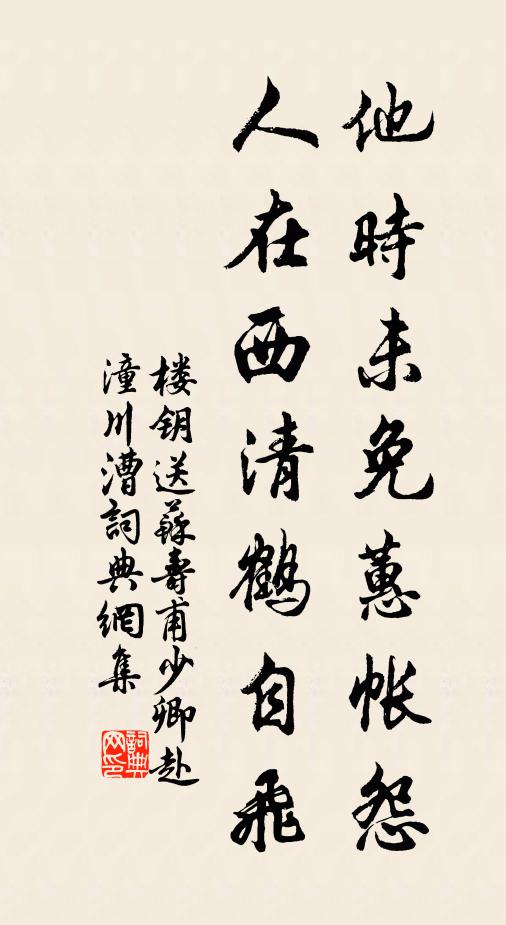 他時未免蕙帳怨
人在西清鶴自飛
楼钥送蘇壽甫少卿赴
潼川漕詞典網集
詞典網印